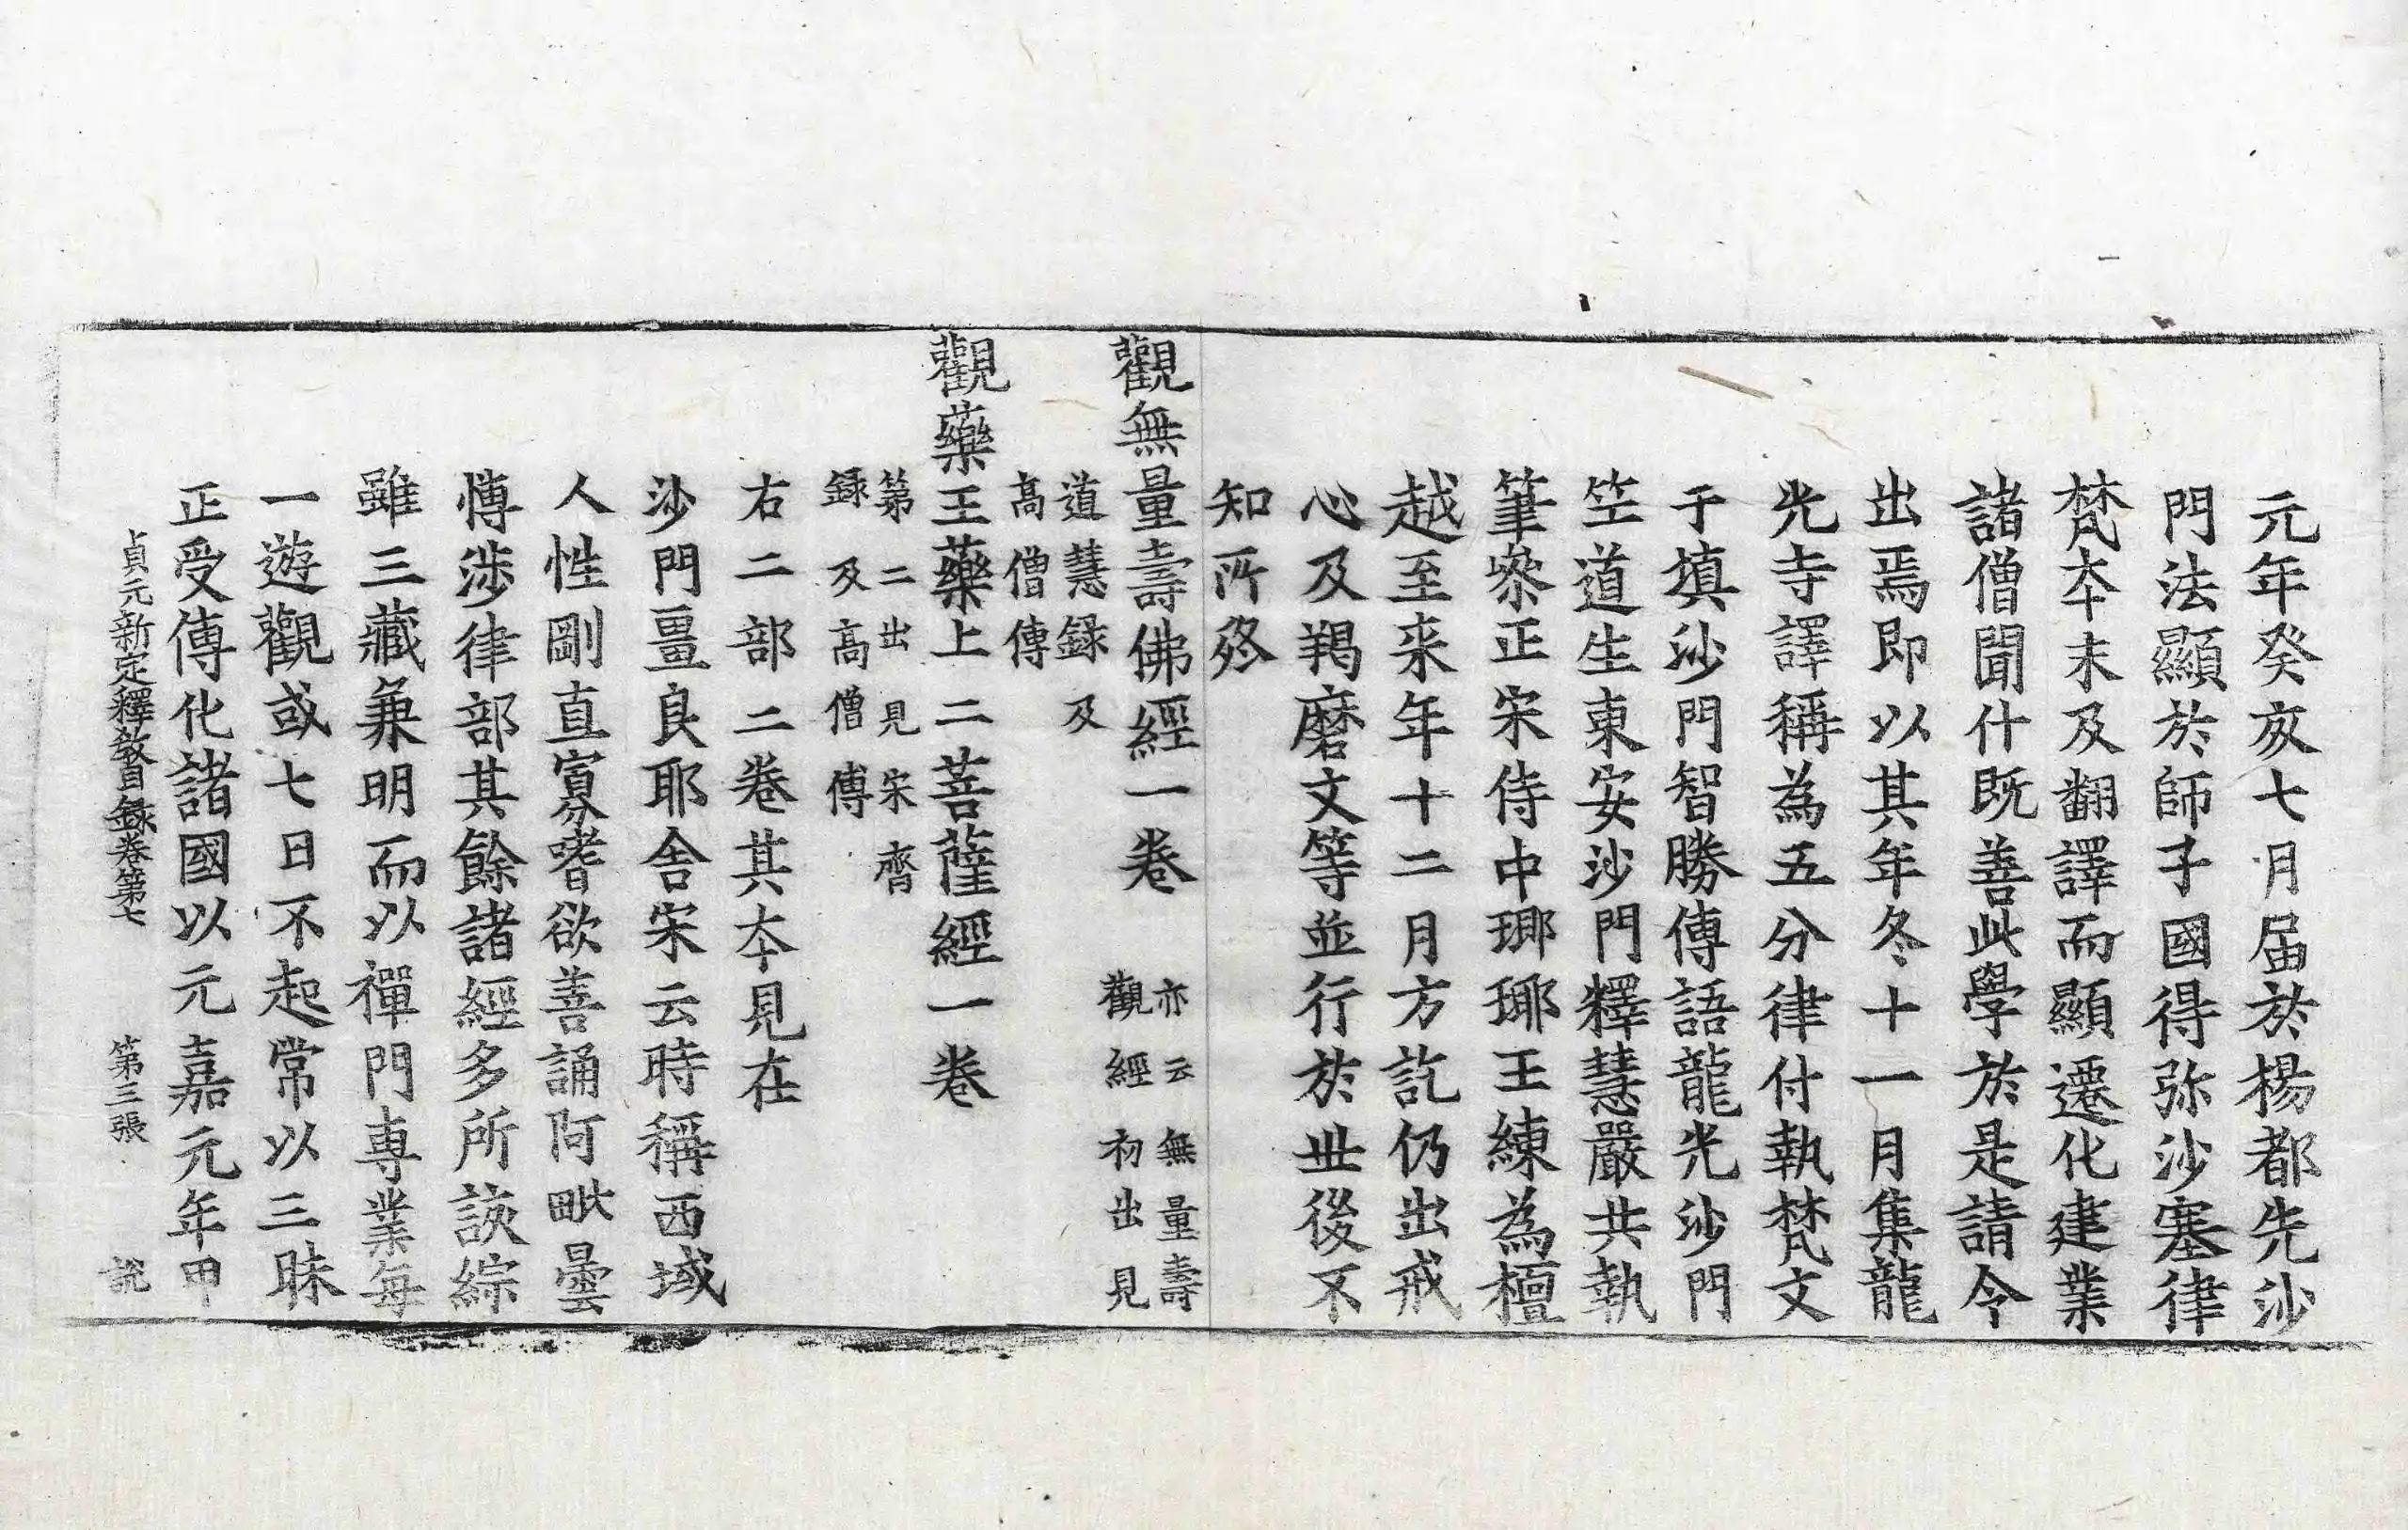 元年癸亥七月届於楊都先沙
門法顯於師子國得弥沙塞律
梵夲未及翻譯而顯遷化建業
諸僧聞什既善此學於是請令
出焉即以其年冬十一月集龍
光寺譯稱為五分律付執梵文
于填沙門智勝傳語龍光沙門
竺道生東安沙門釋慧嚴共執
筆叅正宋侍中瑯瑘王練為檀
越至来年十二月方訖仍出戒
心及羯磨文等並行於丗後不
知所終
觀無量壽佛經一卷
亦云無量壽
觀經初出見
道慧録及
髙僧傳
觀藥王藥上二菩薩經一卷
第二出見宋齊
録及高僧傳
右二部二卷其夲見在
沙門畺良耶舍宋云時稱西域
人性剛直寡嗜欲善誦阿毗曇
愽渉律部其餘諸經多所該綜
雖三藏兼明而以禪門専業每
一遊觀或七日不起常以三昧
正受傳化諸國以元嘉元年甲
貞元新定釋教目録卷第七
第三張
説